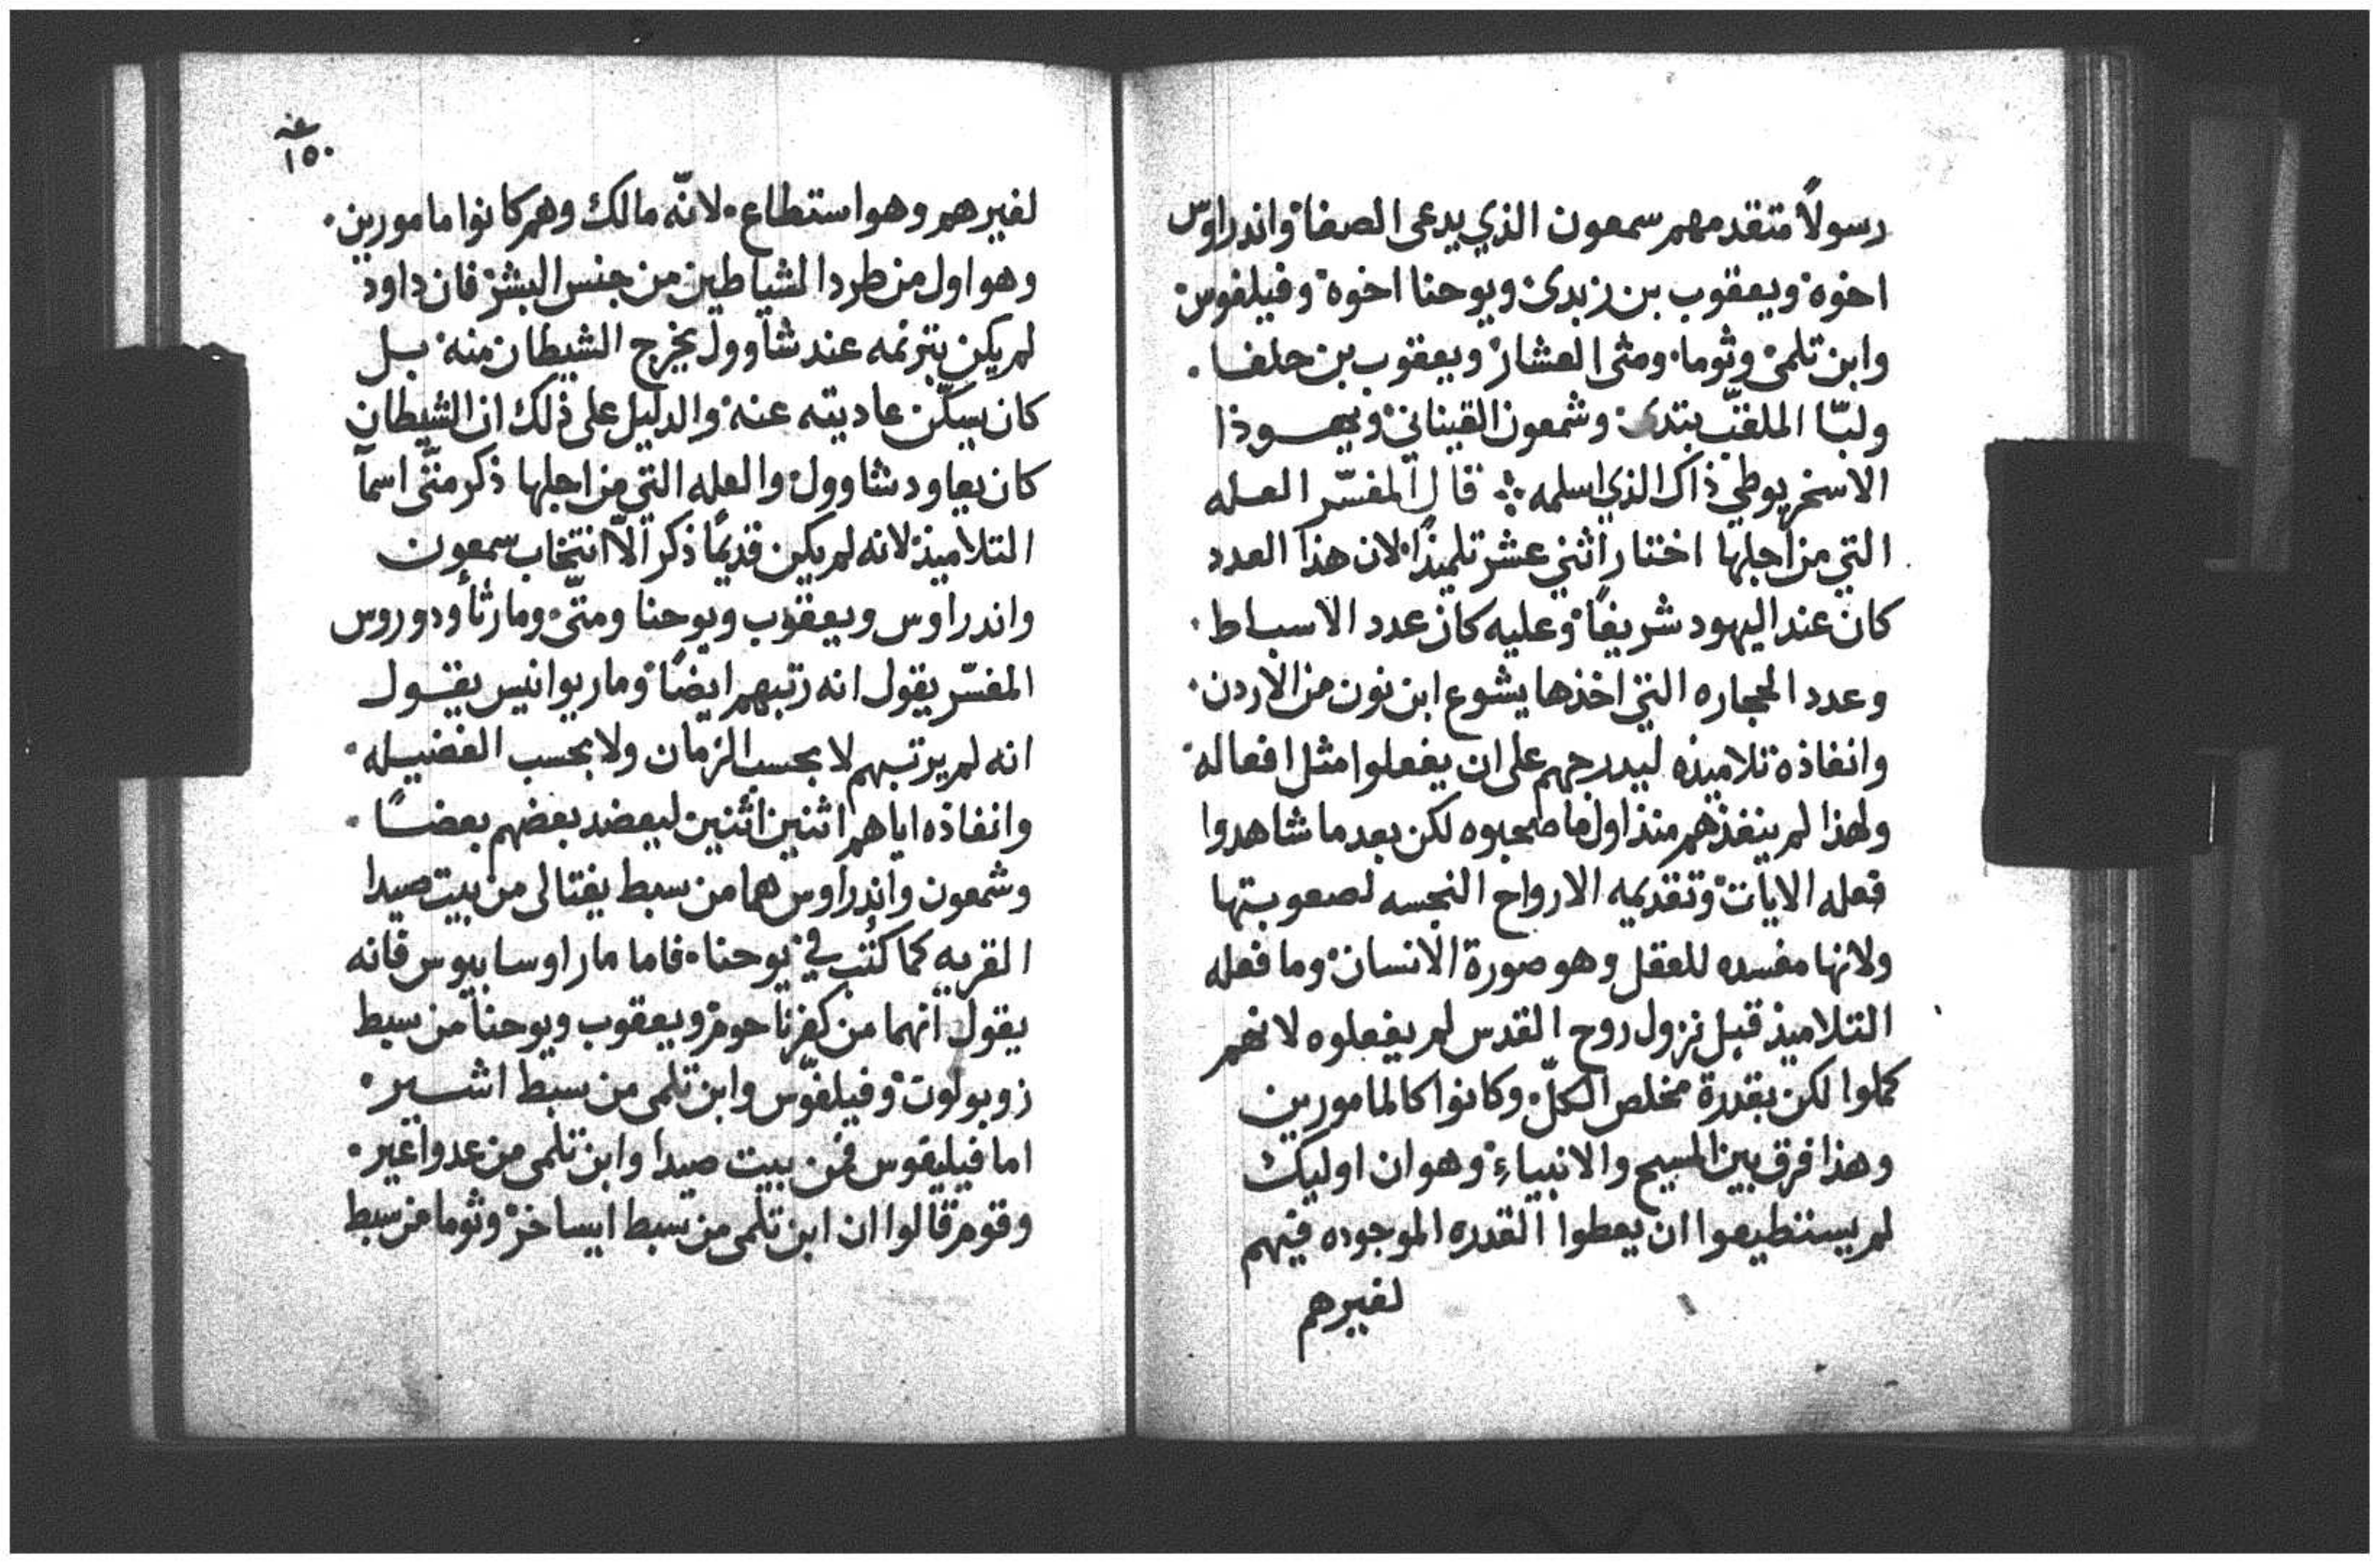 رسولاً متقدمهم سمعون الذي يدعى الصفا واندراوس
اخوه ويعقوب بن زبدى ويوحنا اخوه وفيلفوس
وابن تلمى وثوما ومتى العشار ويعقوب بن حلفا.
ولبّا الملقّب بتدى وشمعون القيناني ويهوذا
الاسخريوطي ذاك الذي اسلمه ۞ قال المفسّر العله
التي من اجلها اختار اثني عشر تلميذًا لان هذا العدد
كان عند اليهود شريفًا وعليه كان عدد الاسباط.
وعدد الحجاره التي اخذها يشوع ابن نون من الاردن.
وانفاذه تلاميذه ليدرجهم على ان يفعلوا مثل افعاله.
ولهذا لم ينفذهم منذ اول ما صحبوه لكن بعد ما شاهدوا
فعله الايات وتقديمه الارواح النجسه لصعوبتها
ولانها مفسده للعقل وهو صورة الانسان وما فعله
التلاميذ قبل نزول روح القدس لم يفعلوه لانهم
كملوا لكن بقدرة مخلص الكلّ وكانوا كالمامورين
وهذا فرق بين المسيح والانبياءِ وهو ان اوليك
لم يستطيعوا ان يعطوا القدره الموجوده فيهم
لغيرهم
١٥٠
لغيرهم وهو استطاع. لانّه مالك وهم كانوا مامورين.
وهو اول من طرد الشياطين من جنس البشر فان داود
لم يكن بترنمه عند شاوول يخرج الشيطان منه بل
كان يسكّن عاديته عنه والدليل على ذلك ان الشيطان
كان يعاود شاوول والعله التي من اجلها ذكر متّى اسما
التلاميذ لانه لم يكن قديمًا ذكر الّا انتخاب سمعون
واندراوس ويعقوب ويوحنا ومتّى ومار ثاودوروس
المفسّر يقول انه رتبهم ايضًا ومار يوانيس يقول
انه لم يرتبهم لا بحسب الزمان ولا بحسب الفضيله.
وانفاذه اياهم اثنين اثنين ليعضد بعضهم بعضًا.
وشمعون واندراوس هما من سبط يفتالى من بيت صيدا
القريه كما كُتب في يوحنا. فاما مار اوسابيوس فانه
يقول انهما من كفرناحوم ويعقوب ويوحنا من سبط
زوبولون وفيلفّوس وابن تلمى من سبط اشير.
اما فيليقوس فمن بيت صيدا وابن تلمى من عدواغير.
وقوم قالوا ان ابن تلمى من سبط ايساخر وثوما من سبط